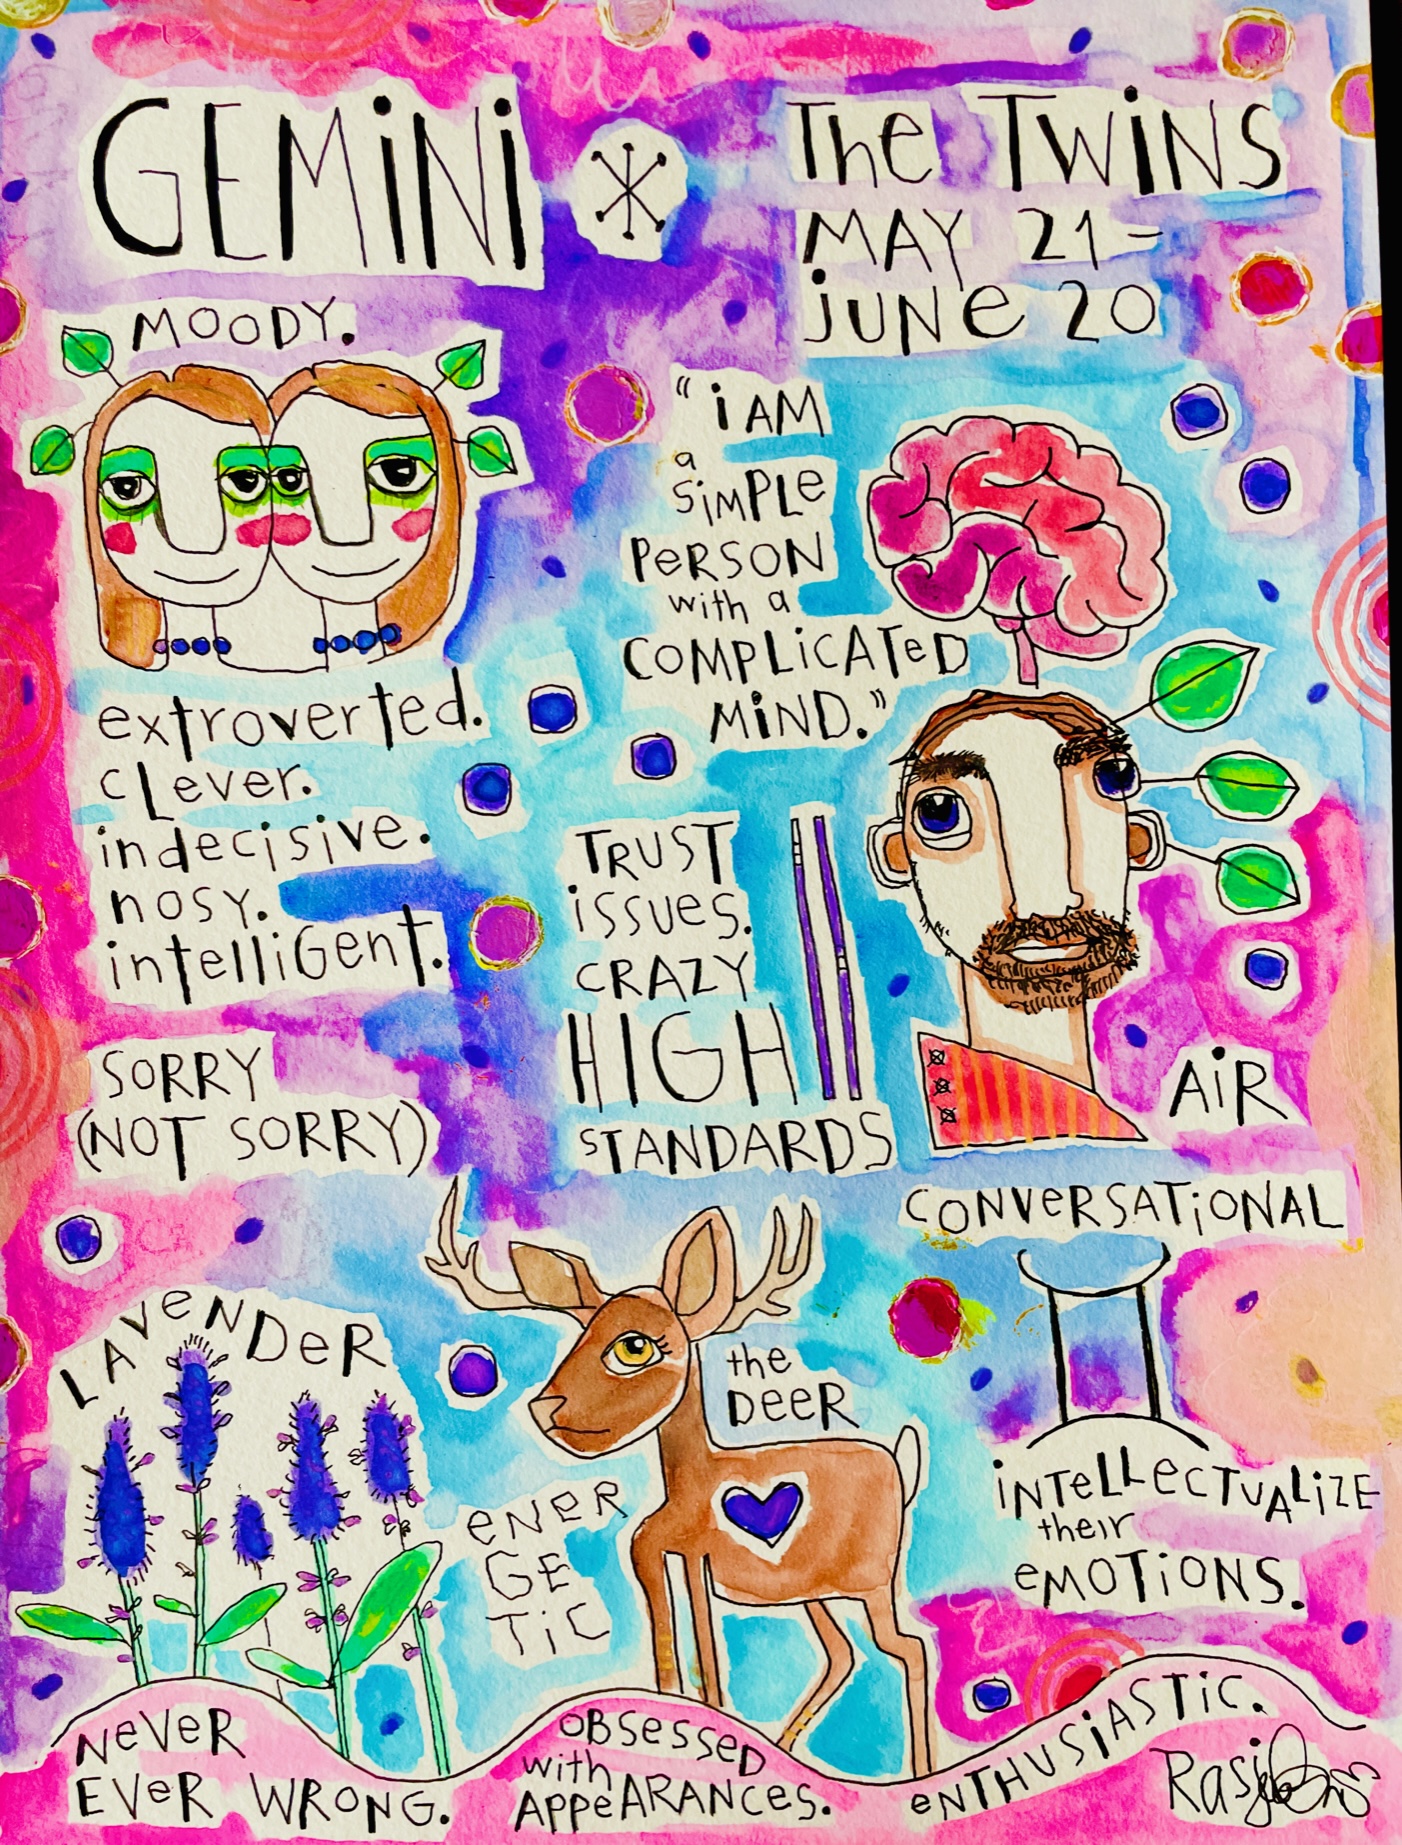 GEMiNi
The TWiNS
MAY 21-
jUNe 20
MOODY.
"i AM
a
SiMPLe
PeRSON
with a
COMPLiCATeD
MiND."
extroverted.
cLever.
indecisive.
nosy.
intelliGent.
TRUST
iSSUeS.
CRAZY
HIGH
STANDARDS
SORRY
(NOT SORRY)
AiR
CONVeRSATiONAL
LAVeNDeR
the
DeeR
eNeR
Ge
TiC
iNTeLLeCTUALiZE
their
eMOTiONS.
NeVeR
EVeR WRONG.
OBSeSSeD
with
APPeARANCeS.
eNTHUSiASTiC.